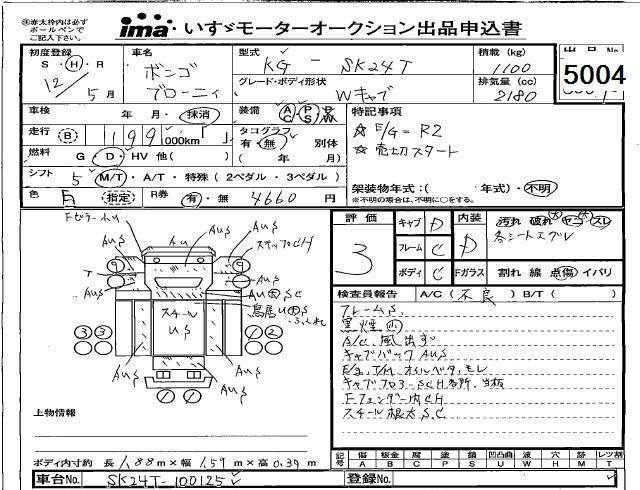 ※赤太枠内は必ず
ボールペンで
ご記入下さい。
ima いすゞモーターオークション出品申込書
初度登録 S・H・R 12年 5月
車名 ボンゴ ブローニィ
型式 KG - SK24T
グレード・ボディ形状 Wキャブ
積載(kg) 1100
排気量(cc) 2180
出品No 5004
車検 年・月・抹消
装備 AC PS PW
走行 B 199 000km
タコグラフ 有・無 別体 ( 年 月)
燃料 G・D・HV 他( )
シフト 5 M/T・A/T・特殊(2ペダル・3ペダル)
色 白 指定 R券 有・無 4660円
特記事項
☆ E/G=R2
☆ 売切スタート
架装物年式:( 年式)・不明
※不明の場合は、不明に○をする。
評価 3
キャブ D
フレーム C
ボディ C
内装 D
Fガラス
汚れ 破れ コゲ スレ
各シートエグレ
割れ 線 点傷 イバリ
検査員報告 A/C(不良) B/T( )
フレームS
黒煙小
A/C 風出ず
キャブバック AuS
E/g, T/M オイルベタ,モレ
キャブフロアーSCH各所,当板
Fフェンダー内CH
スチール根太S,C
Fピラーhu
AuS
Au
AuS
ステップCH
AuS
T
AuS
Au大SC
鳥居U大S
スチール
US
AuS
AuS
AuS
9 9
3 3 1 2
上物情報
ボディ内寸約 長 1.88m×幅 1.59m×高 0.39m
記号 傷 A 板金 B 腐 C 塗 P 錆 S 凹凸凹 U 波 W 穴 H 跡 M レツ割 T
車台No. SK24T-100125
登録No.